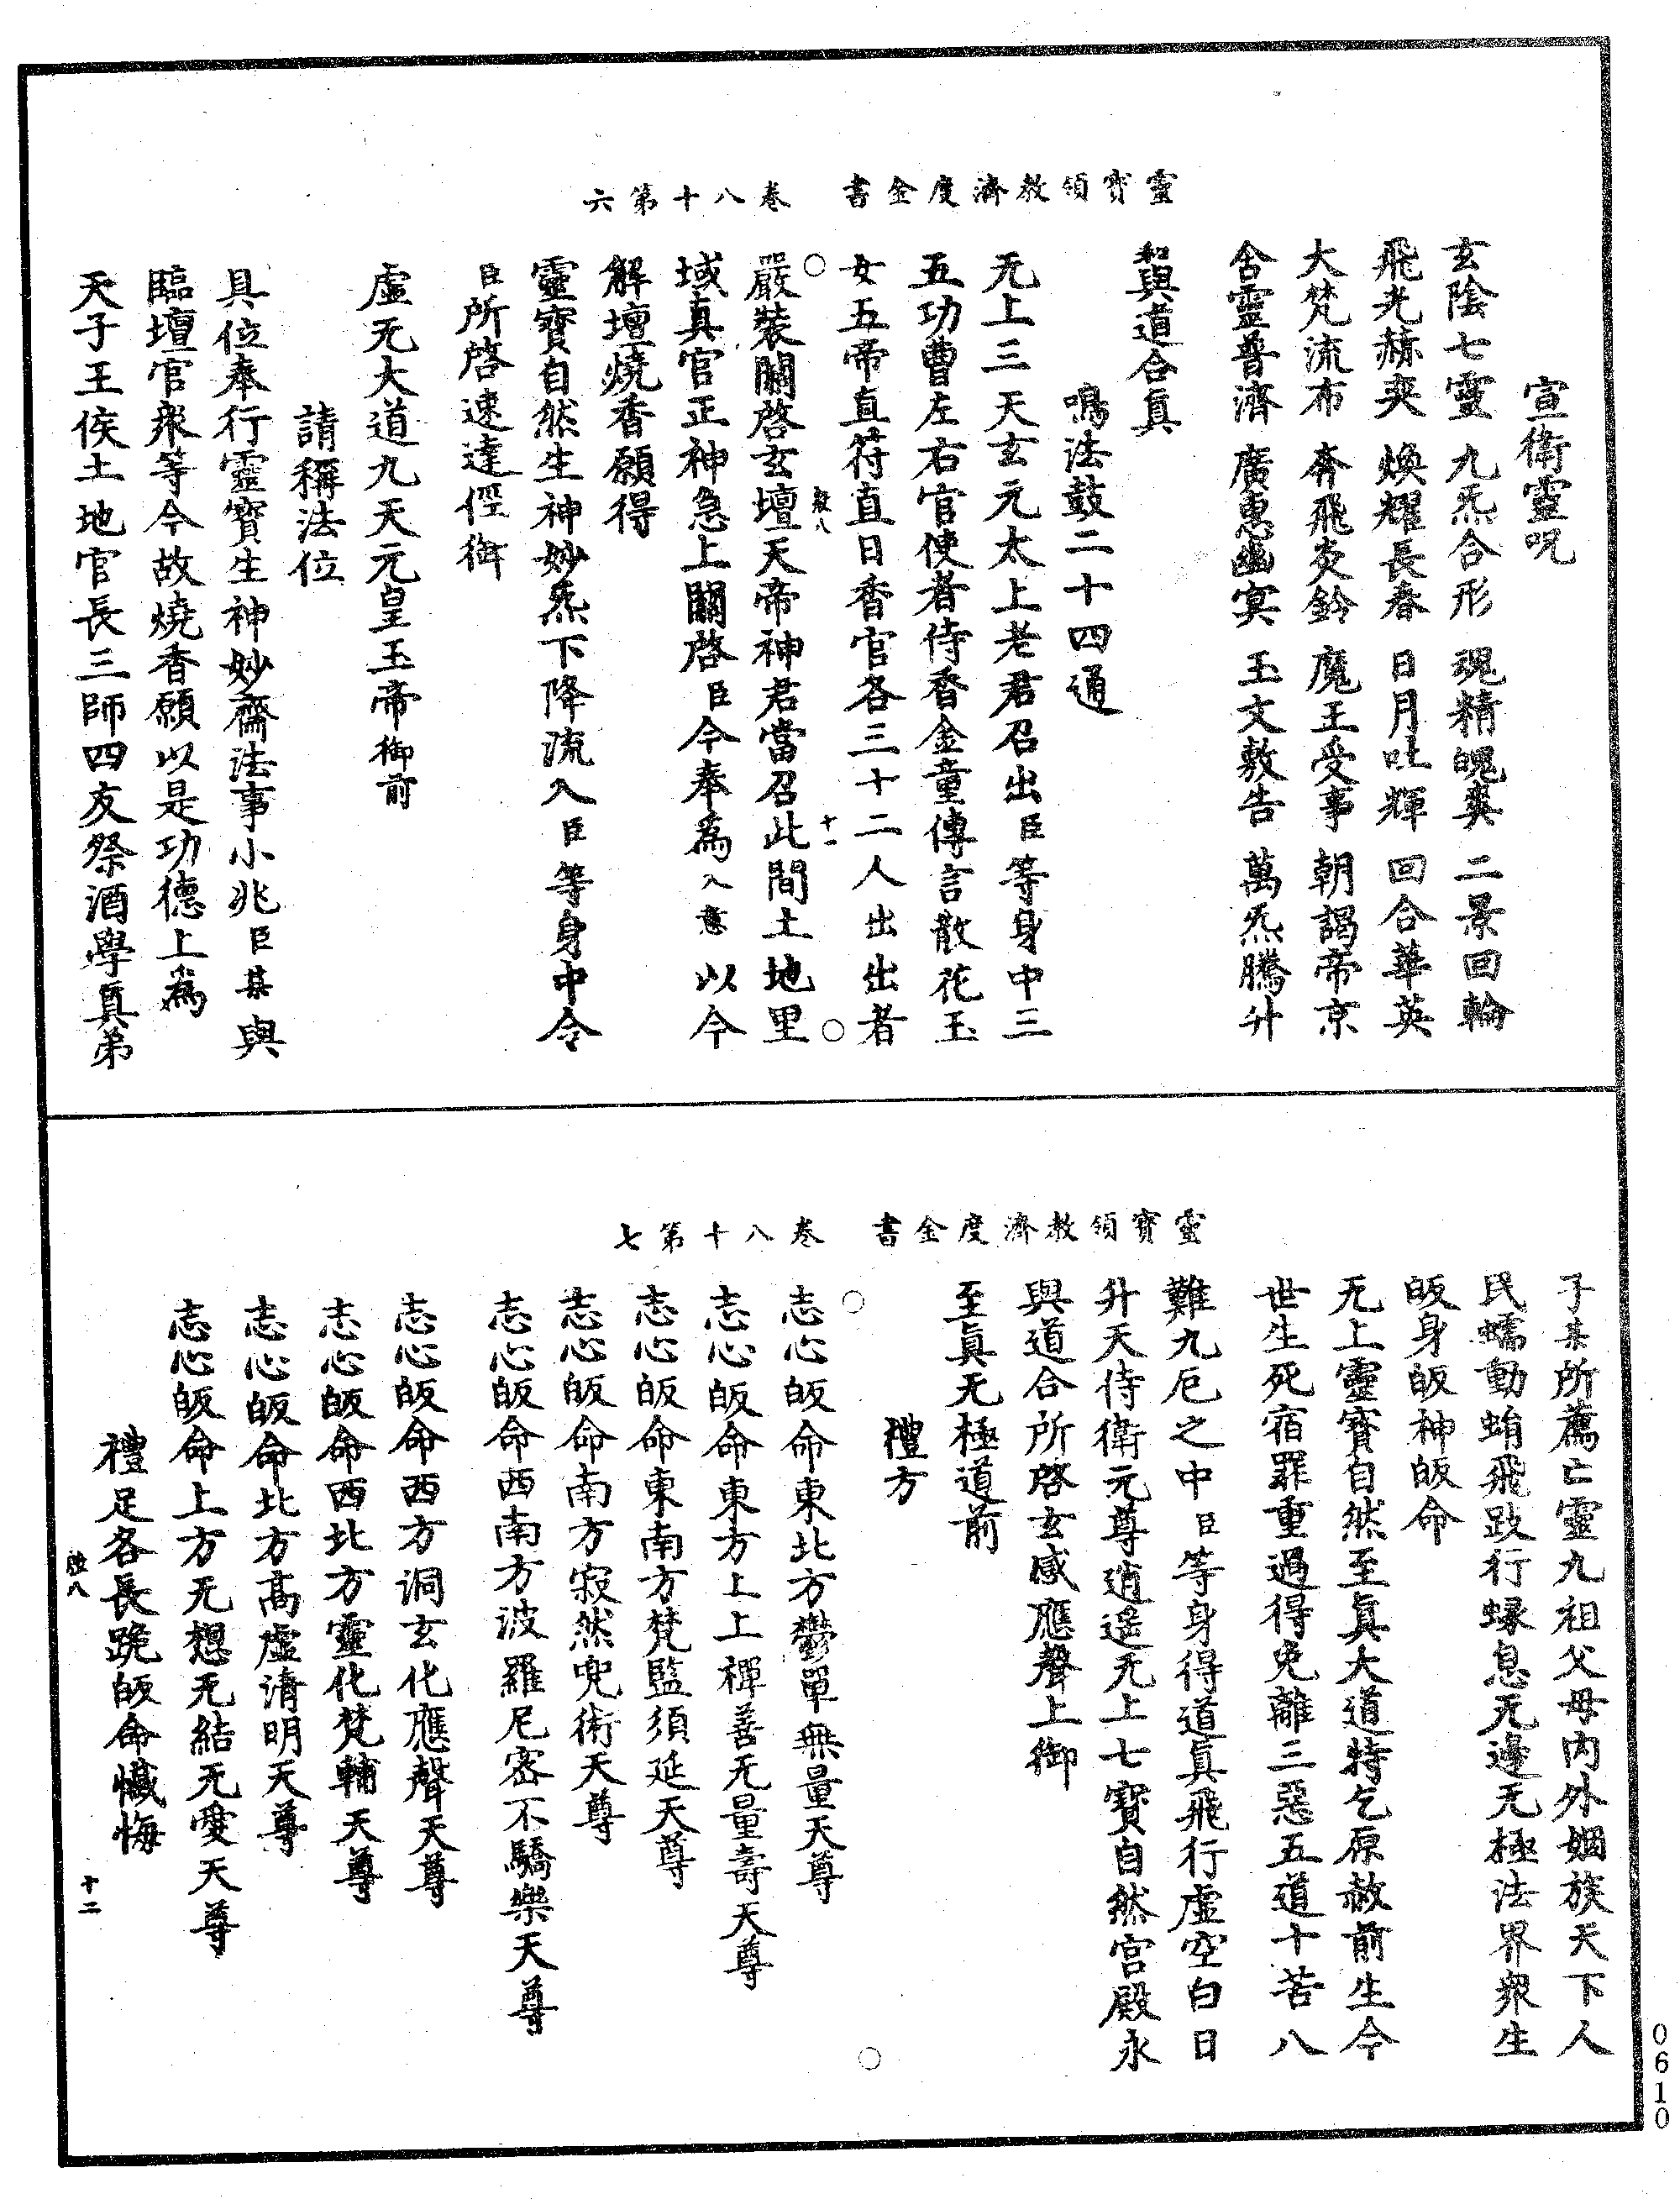 靈寶領教濟度金書　卷八十第六
宣衛靈呪
玄陰七靈　九炁合形　魂精魄爽　二景回輪
飛光赫奕　煥耀長春　日月吐輝　回合華英
大梵流布　奔飛炎鈴　魔王受事　朝謁帝京
含靈普濟　廣惠幽冥　玉文敷告　萬炁騰升
契與道合真
鳴法鼓二十四通
无上三天玄元太上老君召出臣等身中三
五功曹左右官使者侍香金童傳言散花玉
女五帝直符直日香官各三十二人出出者
嚴裝關啓玄壇天帝神君當召此間土地里
域真官正神急上關啓臣今奉為入意以今
解壇燒香願得
靈寶自然生神妙炁下降流入臣等身中令
臣所啓速達徑御
虛无大道九天元皇玉帝御前
請稱法位
具位奉行靈寶生神妙齋法事小兆臣某與
臨壇官衆等今故燒香願以是功德上為
天子王侯土地官長三師四友祭酒學真弟
十一
靈寶領教濟度金書　卷八十第七
子某所薦亡靈九祖父母內外姻族天下人
民蠕動蛸飛跂行蠉息无邊无極法界衆生
皈身皈神皈命
无上靈寶自然至真大道特乞原赦前生今
世生死宿罪重過得免離三惡五道十苦八
難九厄之中臣等身得道真飛行虛空白日
升天侍衛元尊逍遙无上七寶自然宮殿永
與道合所啓玄感應聲上御
至真无極道前
禮方
志心皈命東北方鬱單無量天尊
志心皈命東方上上禪善无量壽天尊
志心皈命東南方梵監須延天尊
志心皈命南方寂然兜術天尊
志心皈命西南方波羅尼密不驕樂天尊
志心皈命西方洞玄化應聲天尊
志心皈命西北方靈化梵輔天尊
志心皈命北方高虛清明天尊
志心皈命上方无想无結无愛天尊
禮足各長跪皈命懺悔
十二
0610